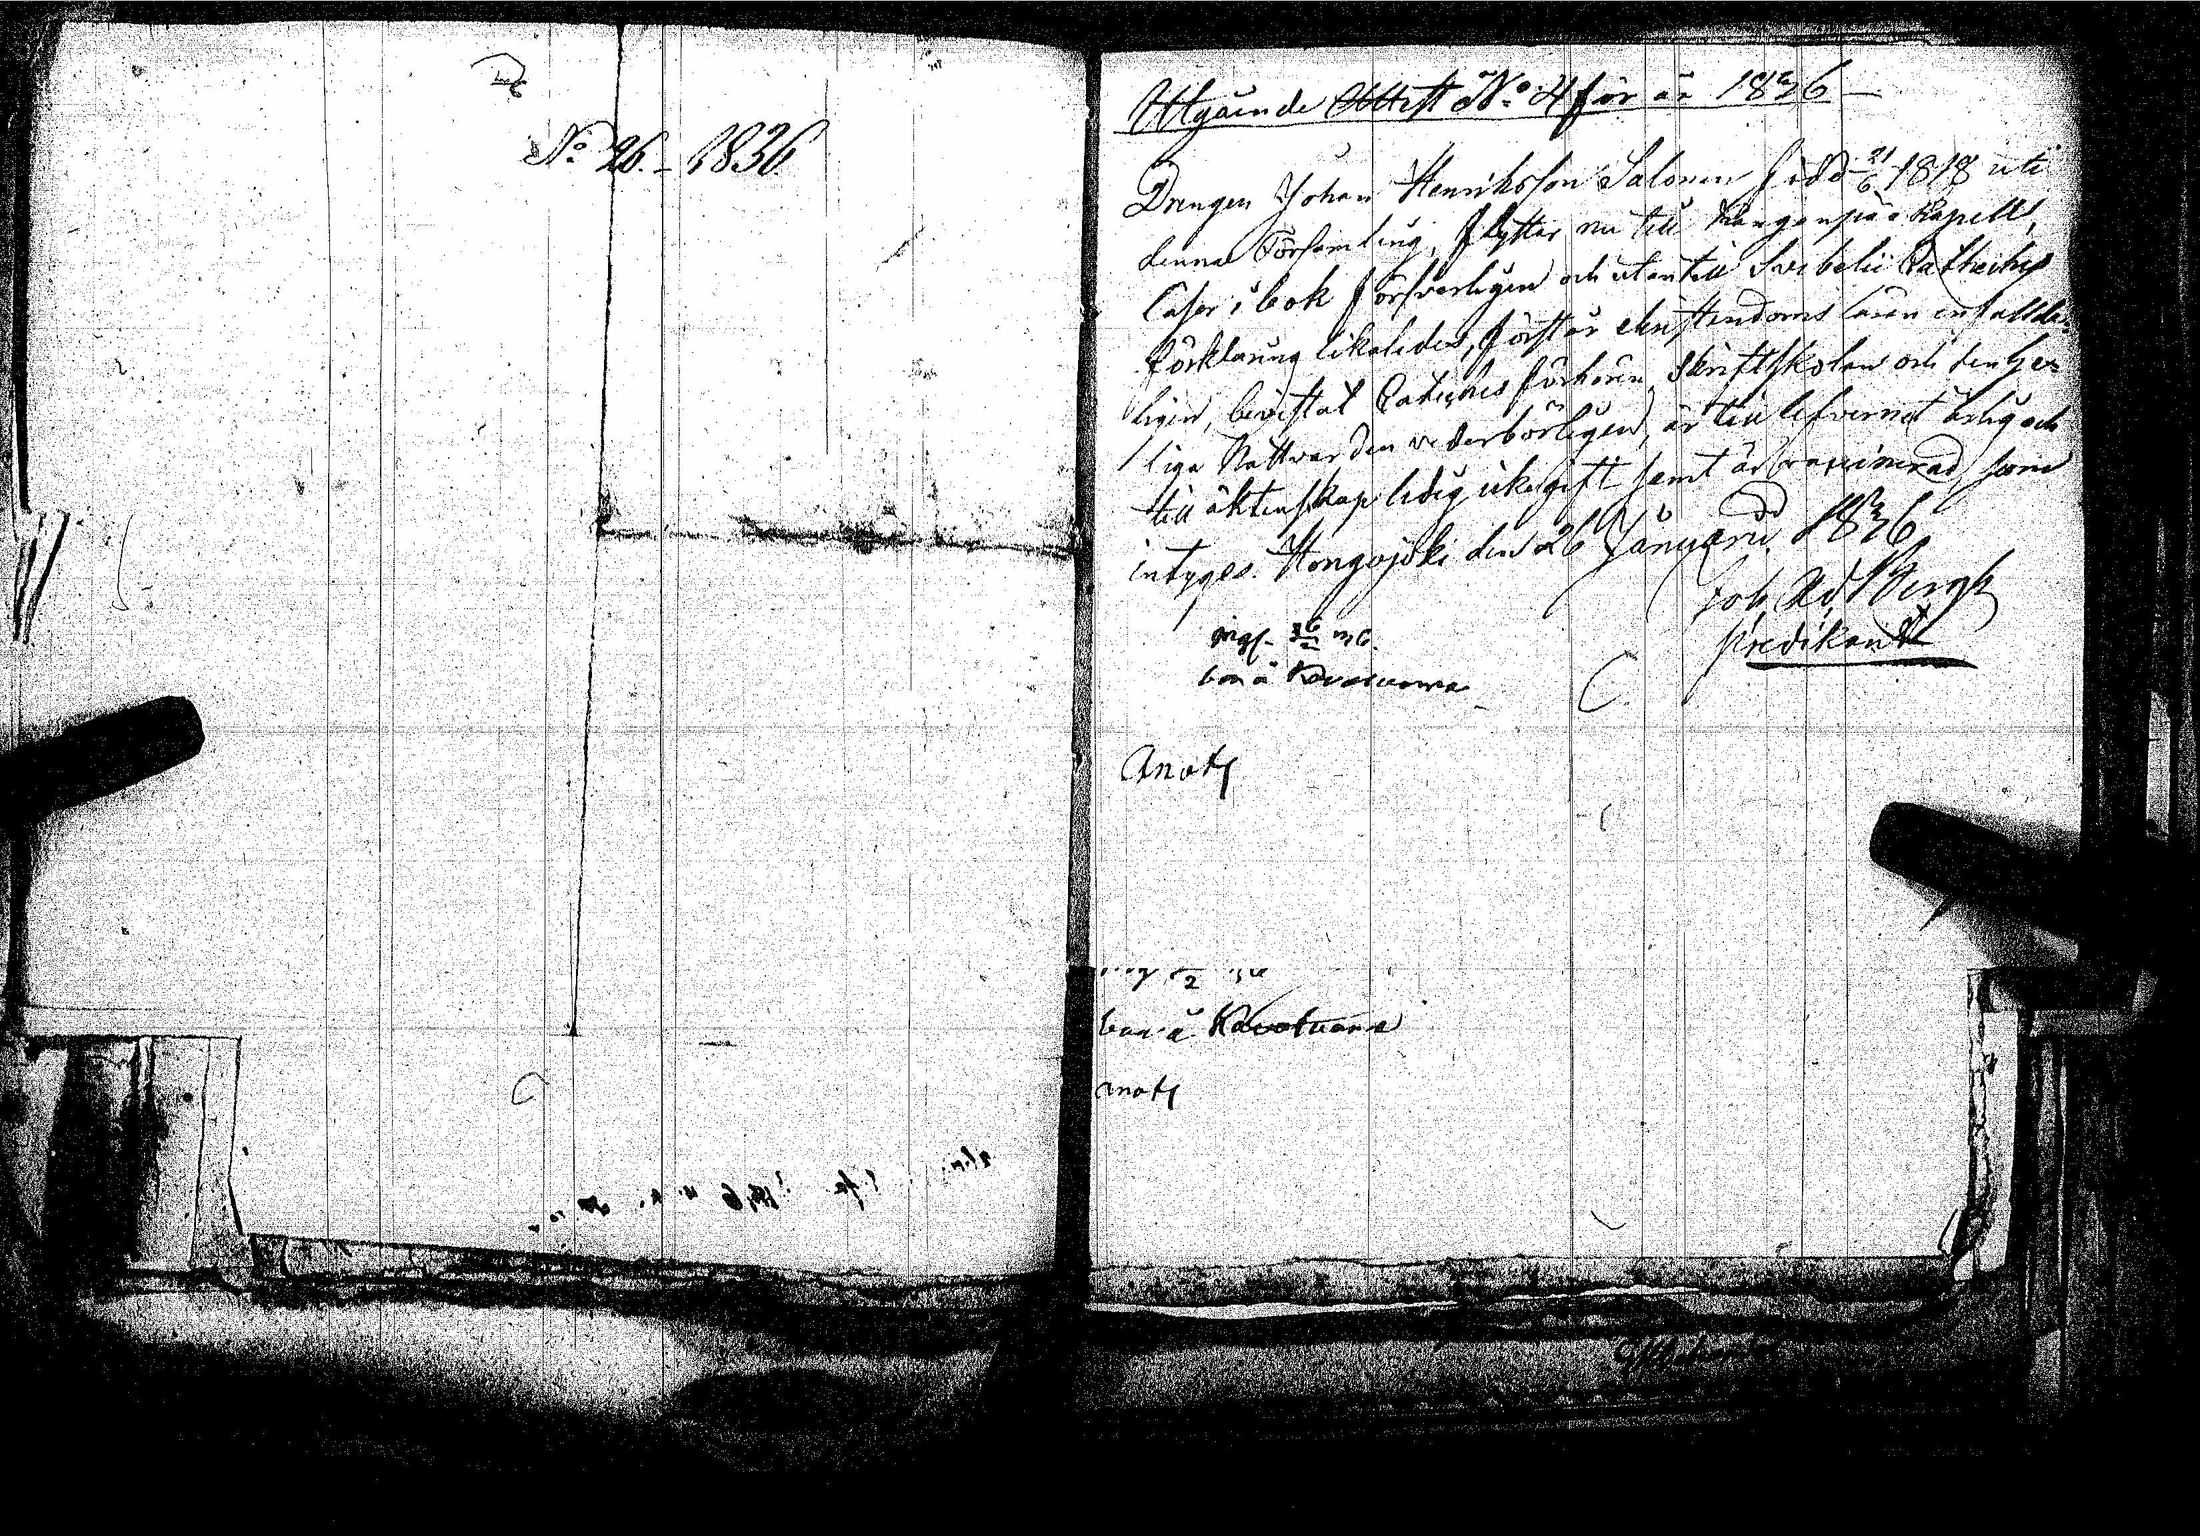 No 26. - 1836
Utgående Attest No 4 för år 1836 —
Drengen Johan Henriksson Salonen född 21/6 1818 uti
denna Församling, flyttar nu till Kanganpää Kapell,
läser i bok försvarligen och utantill Svebelii Catheches
förklaring likaledes, förstår christendoms läran enfallde-
ligen, bevistat Catechis förhören, Skriftskolan och den he-
liga Nattvarden vederbörligen, är till lefvernet ärlig och
till äktenskap ledig icke gift samt är vaccinerad, som
intyges. Hongojoki den 26 Januarii 1836
Joh. Ad. Bergh
predikant
bor å
Anot
bor å
anot